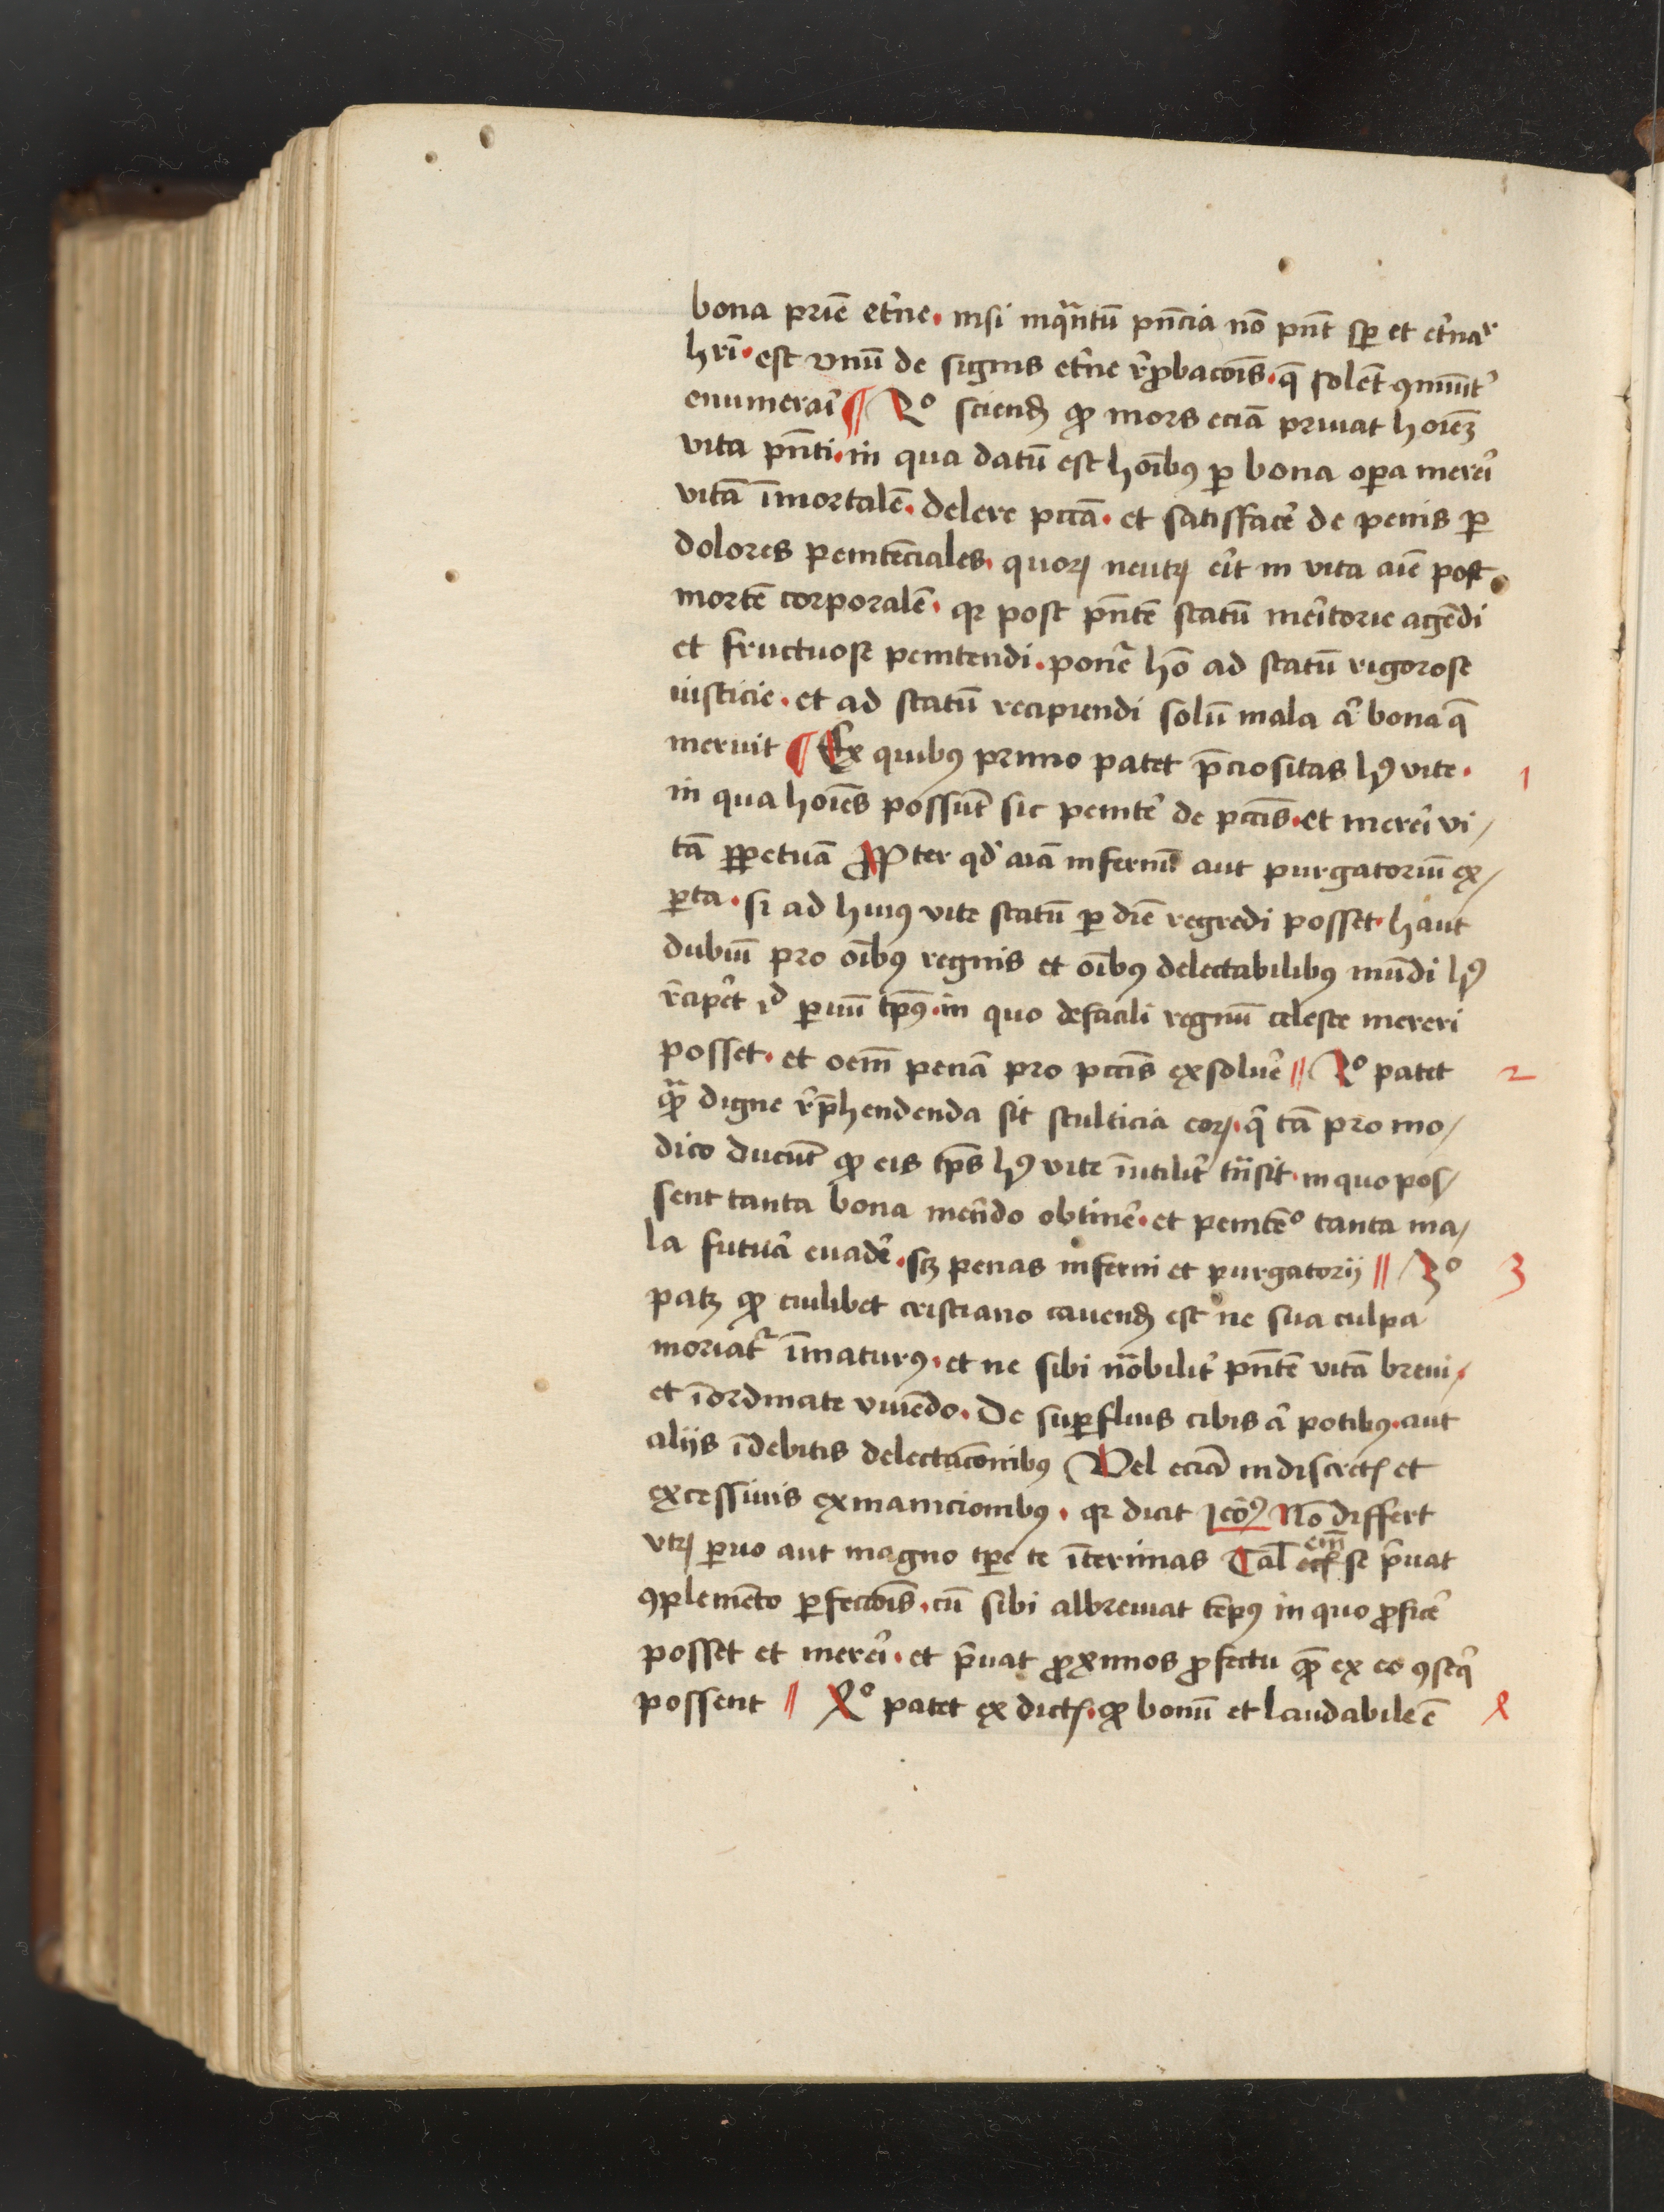 bona prīe et̄ne. nisi inqᵃntū pn̄cia nō pn̄t sp̲ et et̄naʳ
hr̄i. est vnū de signis et̄ne rꝓbacōis. q̄ solēt ꝯmūit̾
enumerari ¶ 2º sciend̄ ꝙ mors eciā priuat hoīeʒ
vita pn̄ti. in qua datū est hōibꝰ ꝑ bona oꝑa mereri
vitā īmortalē. delere pctā. et satisfacē de penis ꝑ
dolores penitēciales. quoꝝ neutꝝ erit in vita aīe post
mortē corporalē. qꝛ post pn̄tē statū meritorie agēdi
et fructuose penitendi. ponēᷓ hō ad statū rigorose
iusticie. et ad statū recipiendi solū mala aᷓ bona q̄
meruit ¶ Ex quibꝰ primo patet p̄ciositas hꝰ vite. 1
in qua hoīes possūt sic penitē de pctīs. et mereri vi/
tā ꝑpetuā ꝓpter qd̾ aīa infernū aut purgatoriū ex/
ꝑta. si ad huiꝰ vite statū ꝑ dīe regredi posset. haut
dubiū pro oībꝰ regnis et oībꝰ delectabilibꝰ mūdi hꝰ
r̄cipet id ꝑuū tp̄ꝰ. in quo defacili regnū celeste mereri
posset. et oēm penā pro pctīs exsoluē // 2º patet 2
qᷓ digne rp̄hendenda sit stulticia eoꝝ. q̄ tā pro mo/
dico ducūt ꝙ eis tp̄s hꝰ vite inutilit̾ tn̄sit. in quo pos/
sent tanta bona merēdo obtinē. et penitēº tanta ma/
la futura euadē. scʒ penas inferni et purgatorij // 3º 3
patʒ ꝙ cuilibet cristiano cauend̄ est ne sua culpa
moriat᷑ īmaturꝰ. et ne sibi nōbilit̾ pn̄tē vitā breui.
et īordinate viuēdo. De suꝑfluis cibis aᷓ potibꝰ. aut
alijs īdebitis delectacōnibꝰ Vel eciā indiscretꝭ et
excessiuis exinanicionibꝰ. qꝛ dicit Jeōꝰ Nō differt
vtꝝ ꝑuo aut magno tp̄e te īterimas Tal̄ em̄ se p̄uat
ꝯplemēto ꝑfectōis. cū sibi abbreuiat tēpꝰ in quo ꝓficē
posset et mereri. et p̄uat ꝓximos ꝓfectu quē ex eo ꝯseq̄
possent // 4º patet ex dictꝭ. ꝙ bonū et laudabile ē 4